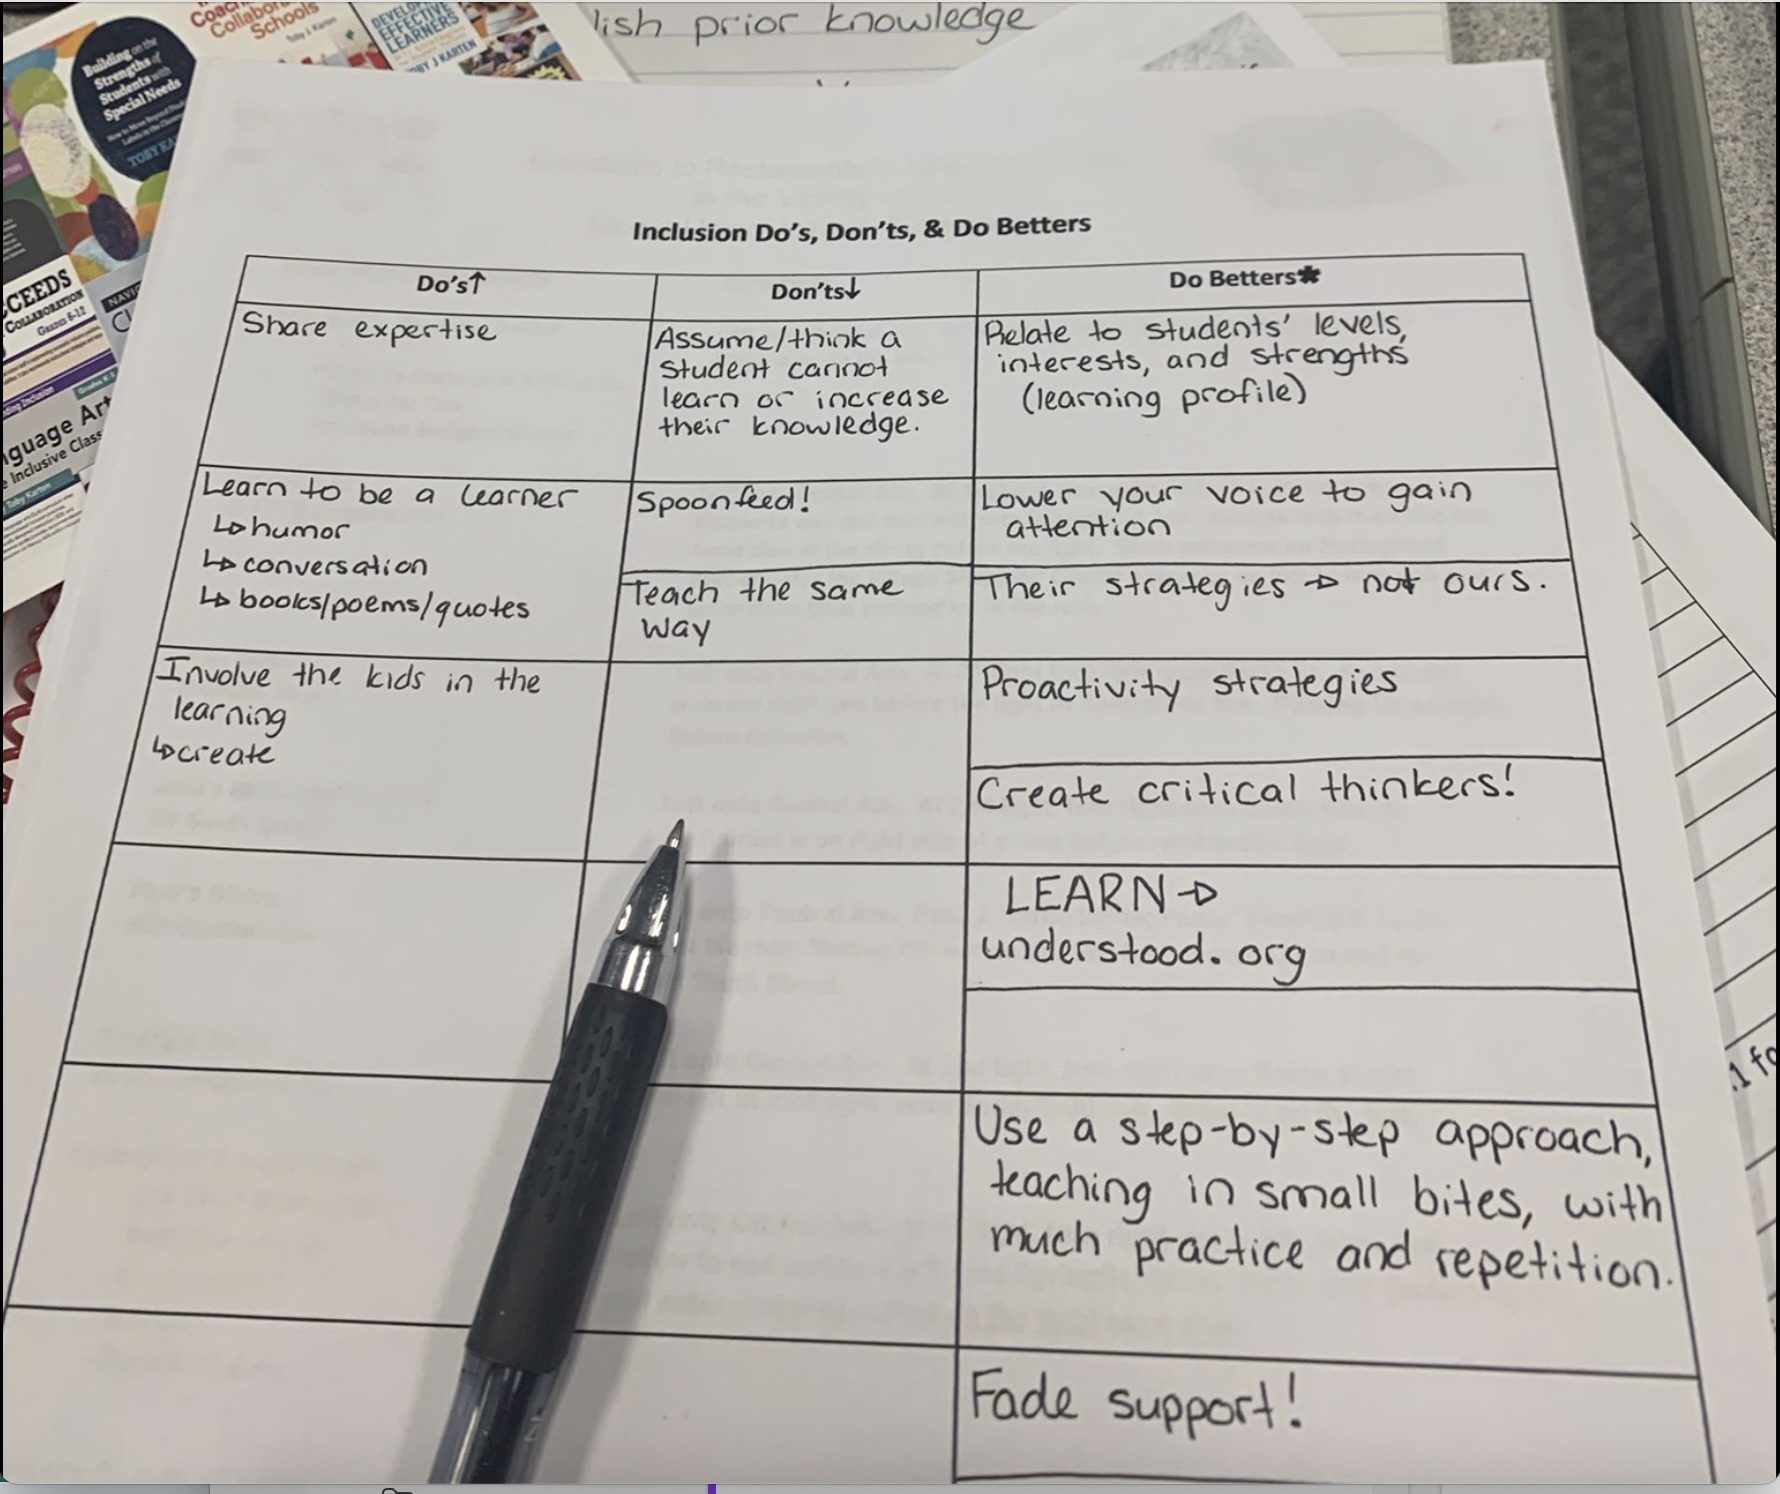 lish prior knowledge
Coac
Collabor
Schools
Toby J. Karten
DEVELO
EFFECTIVE
LEARNERS
TOBY J KARTEN
Building on the
Strengths of
Students with
Special Needs
TOBY KA
CEEDS
COLLABORATION
Grades 6-12
NAVI
CL
nguage Art
e Inclusive Class
Toby Karten
Inclusion Do's, Don'ts, & Do Betters
Do's↑
Don'ts↓
Do Betters*
Share expertise
Assume/think a
student cannot
learn or increase
their knowledge.
Relate to students' levels,
interests, and strengths
(learning profile)
Learn to be a learner
↳humor
↳conversation
↳books/poems/quotes
Spoonfeed!
Lower your voice to gain
attention
Teach the same
way
Their strategies → not ours.
Involve the kids in the
learning
↳create
Proactivity strategies
Create critical thinkers!
LEARN→
understood.org
Use a step-by-step approach,
teaching in small bites, with
much practice and repetition.
Fade support!
.1 fo